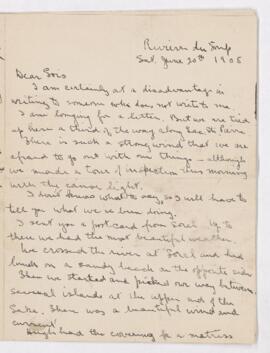 Rivière du Loup
Sat. June 20th 1908
Dear Lois
I am certainly at a disadvantage in
writing to someone who does not write to me.
I am longing for a letter. But we are tied
up here a third of the way along Lac St. Pierre
There is such a strong wind that we are
afraid to go out with our things - although
we made a tour of inspection this morning
with the canoe light.
I don't know what to say, so I will have to
tell you what we've been doing.
I sent you a post card from Sorel. Up to
then we had the most beautiful weather.
We crossed the river at Sorel and had
lunch on a sandy beach on the opposite side
Then we started and picked our way between
several islands at the upper end of the
Lake. There was a beautiful wind and
current
Hugh had the covering for a matress